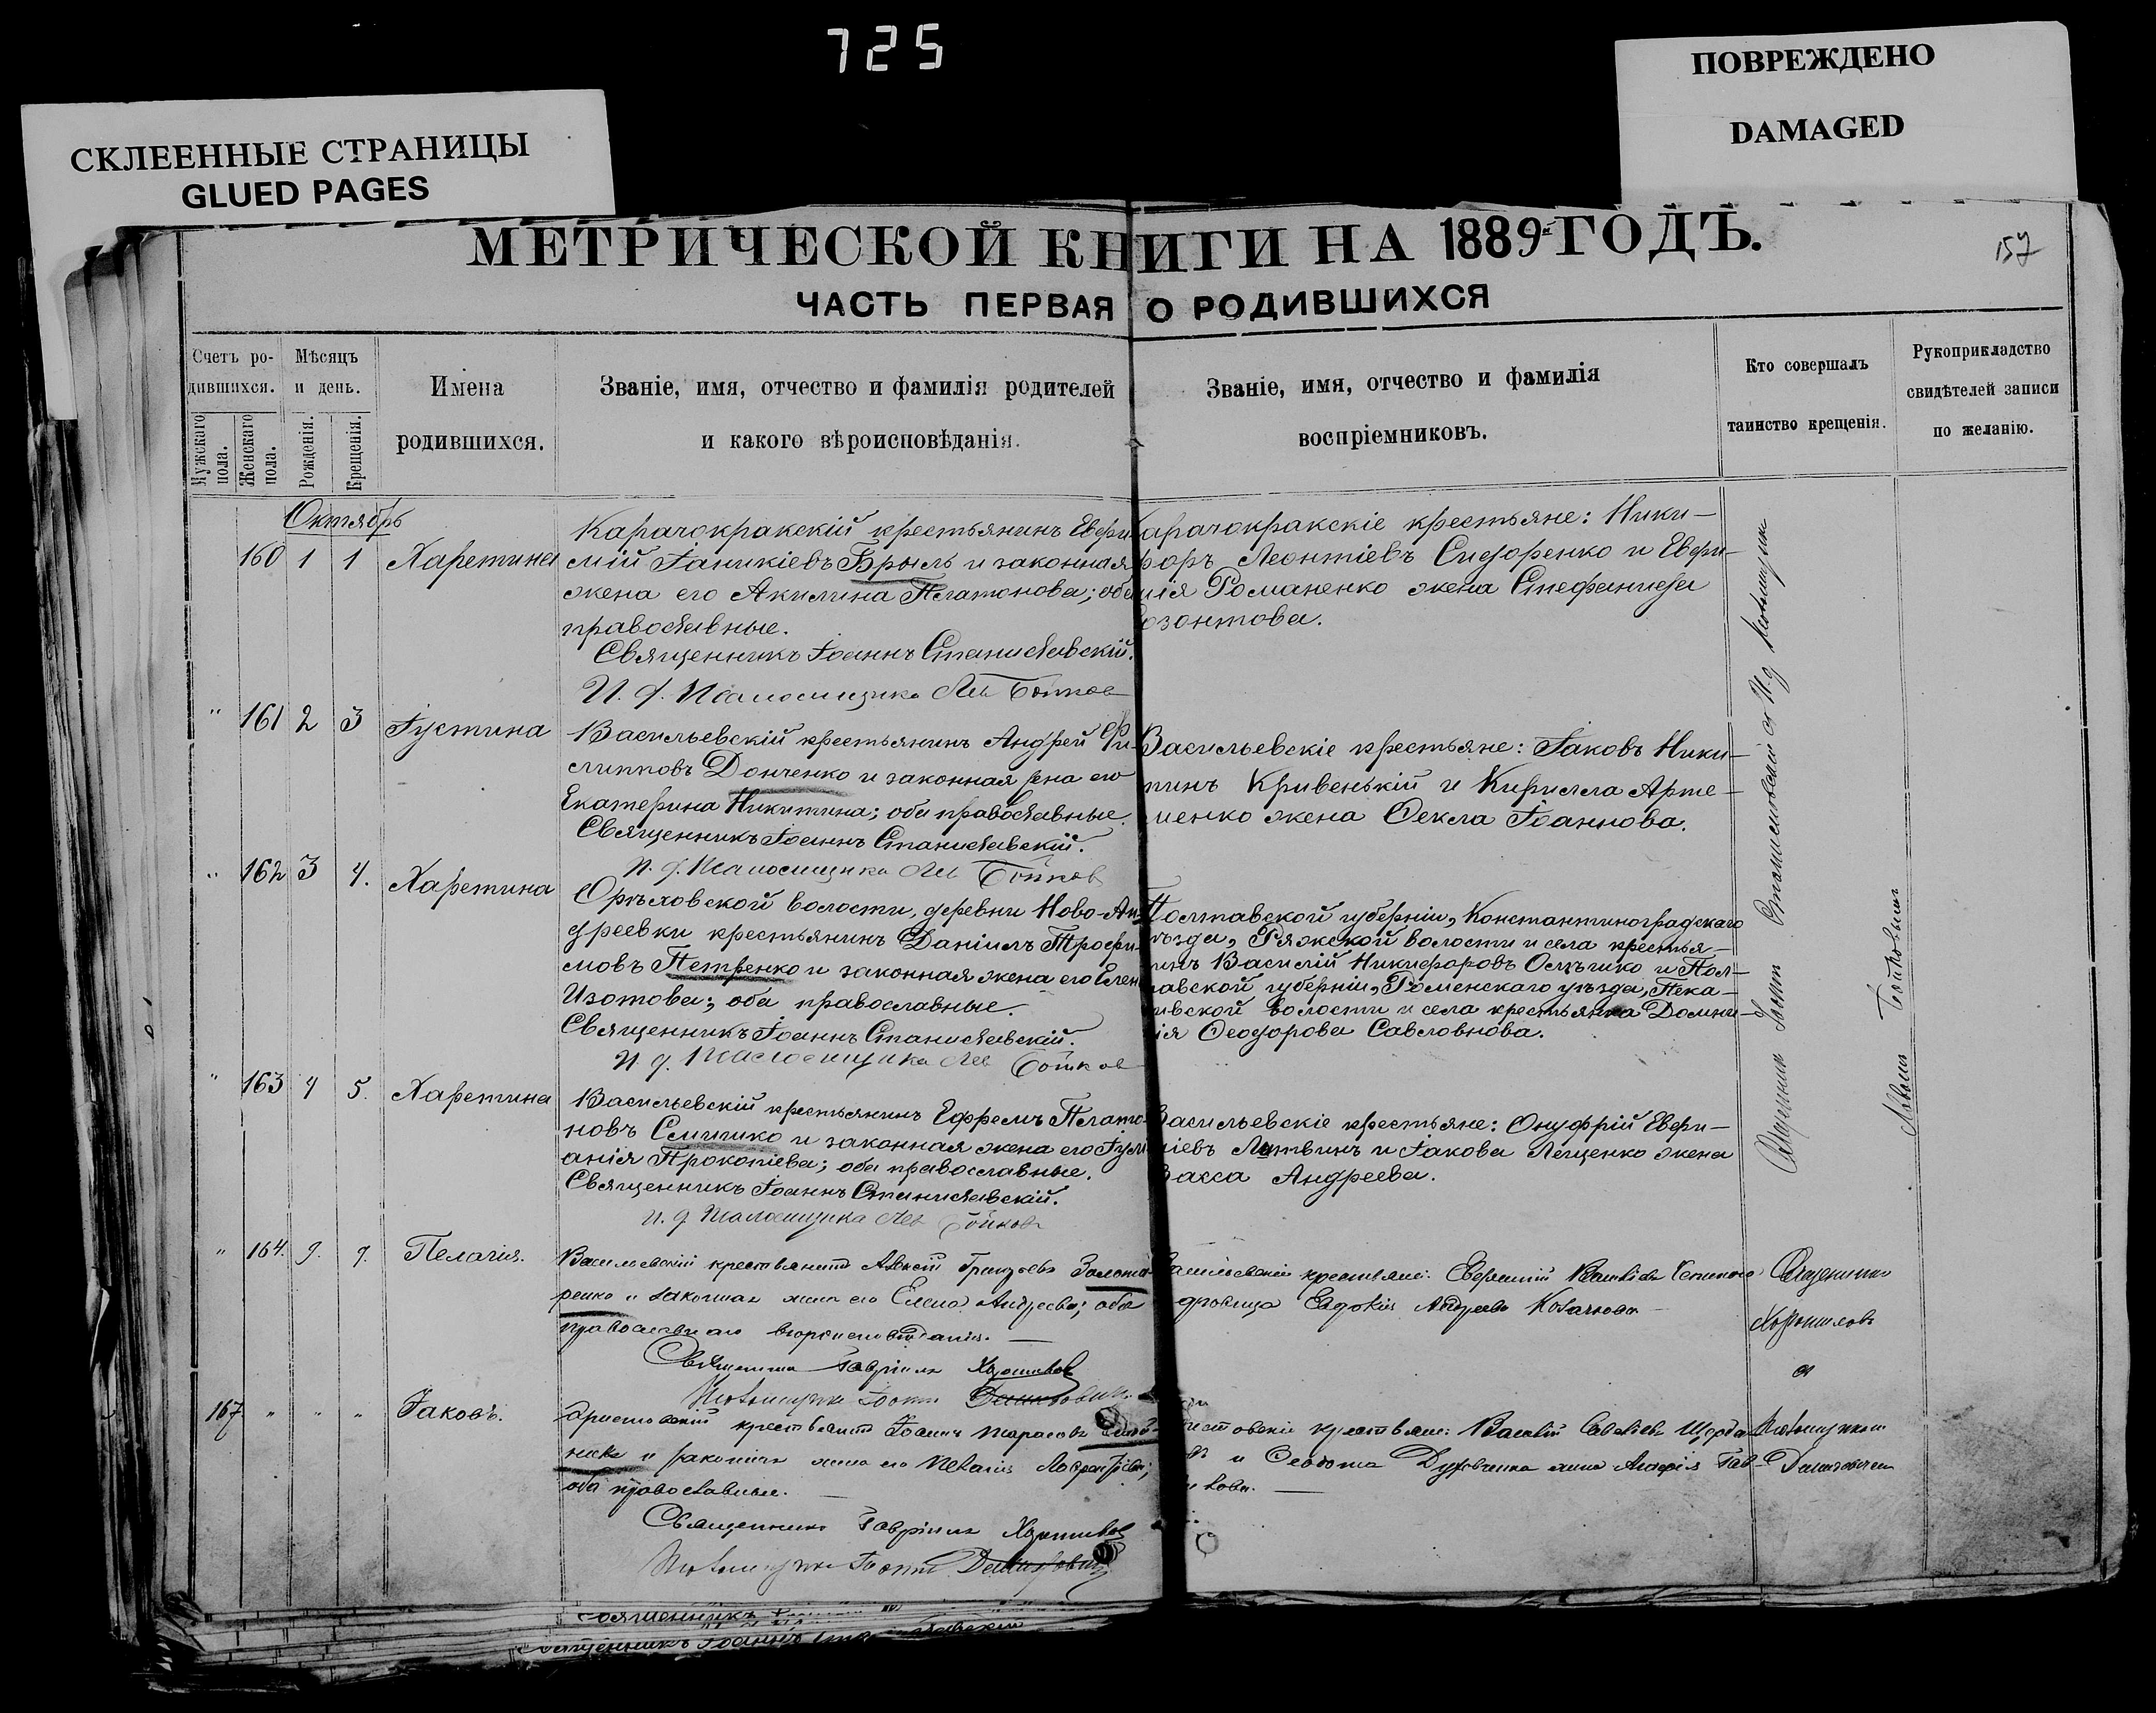 725
СКЛЕЕННЫЕ СТРАНИЦЫ
GLUED PAGES
ПОВРЕЖДЕНО
DAMAGED
МЕТРИЧЕСКОЙ КНИГИ НА 1889 ГОДЪ.
157
ЧАСТЬ ПЕРВАЯ О РОДИВШИХСЯ
Счетъ ро-
дившихся.
Мужскаго пола.
Женскаго пола.
Мѣсяцъ
и день.
Рожденія.
Крещенія.
Имена
родившихся.
Званіе, имя, отчество и фамилія родителей
и какого вѣроисповѣданія.
Званіе, имя, отчество и фамилія
воспріемниковъ.
Кто совершалъ
таинство крещенія.
Рукоприкладство
свидѣтелей записи
по желанію.
Октябрь
160 1 1 Харетина
Карачокракскій крестьянинъ Евфи-
мій Іаникіевъ Брыль и законная
жена его Акилина Платонова; оба
православные.
Священникъ Іоаннъ Станиславскій.
И. д. Псаломщика Лев Бойков
арачокракскіе крестьяне: Ники-
форъ Леонтіевъ Сидоренко и Евфи-
мія Романенко жена Стефанида
озонтова.
" 161 2 3 Іустина
Васильевскій крестьянинъ Андрей Фи-
липповъ Донченко и законная жена его
Екатерина Никитина; оба православные.
Священникъ Іоаннъ Станиславскій.
И. д. Псаломщика Лев Бойков
Васильевскіе крестьяне: Іаковъ Ники-
тинъ Кривенькій и Кирилла Арте-
менко жена Ѳекла Іоаннова.
" 162 3 4. Харетина
Орѣховской волости, деревни Ново-Ан-
дреевки крестьянинъ Даніилъ Трофи-
мовъ Петренко и законная жена его Елен
Изотова; оба православные.
Священникъ Іоаннъ Станиславскій.
И. д. Псаломщика Лев Бойков
Полтавской губерніи, Константиноградскаго
уѣзда, Ряжской волости и села крестья-
нинъ Василій Никифоровъ и Пол-
тавской губерніи, Роменскаго уѣзда, Пека-
ивской волости и села крестьянка Домни-
ія Ѳеодорова Савловнова.
" 163 4 5. Харетина
Васильевскій крестьянинъ Ефремъ Плато-
новъ Слипко и законная жена его Іули
анія Прокопіева; оба православные.
Священникъ Іоаннъ Станиславскій.
И. д. Псаломщика Лев Бойковъ
Васильевскіе крестьяне: Онуфрій Евфи-
міевъ Литвинъ и Іакова Лещенко жена
Васса Андреева.
Священник Іоанн Станиславскій съ И. д. псаломщика
Львомъ Бойковым
" 164. 9. 9. Пелагія.
Васильевскій крестьянинъ Григорьевъ Золота-
ренко и законная жена его Елена Андреева; оба
православнаго вѣроисповѣданія.
Священникъ Гавріилъ Хорошиловъ
Псаломщикъ Іоаннъ
Васильевскіе крестьяне: Евфимій
Евдокія Андреева
Священникъ
Хорошиловъ
съ
Псаломщикомъ
167 " " " Іаковъ.
крестьянинъ Іоаннъ Тарасовъ
и законная жена его Пелагія Лаврентіева;
оба православные.
Священникъ Гавріилъ Хорошиловъ
Псаломщикъ Іоаннъ
крестьяне: Василій Савельевъ
и Ѳеодота жена